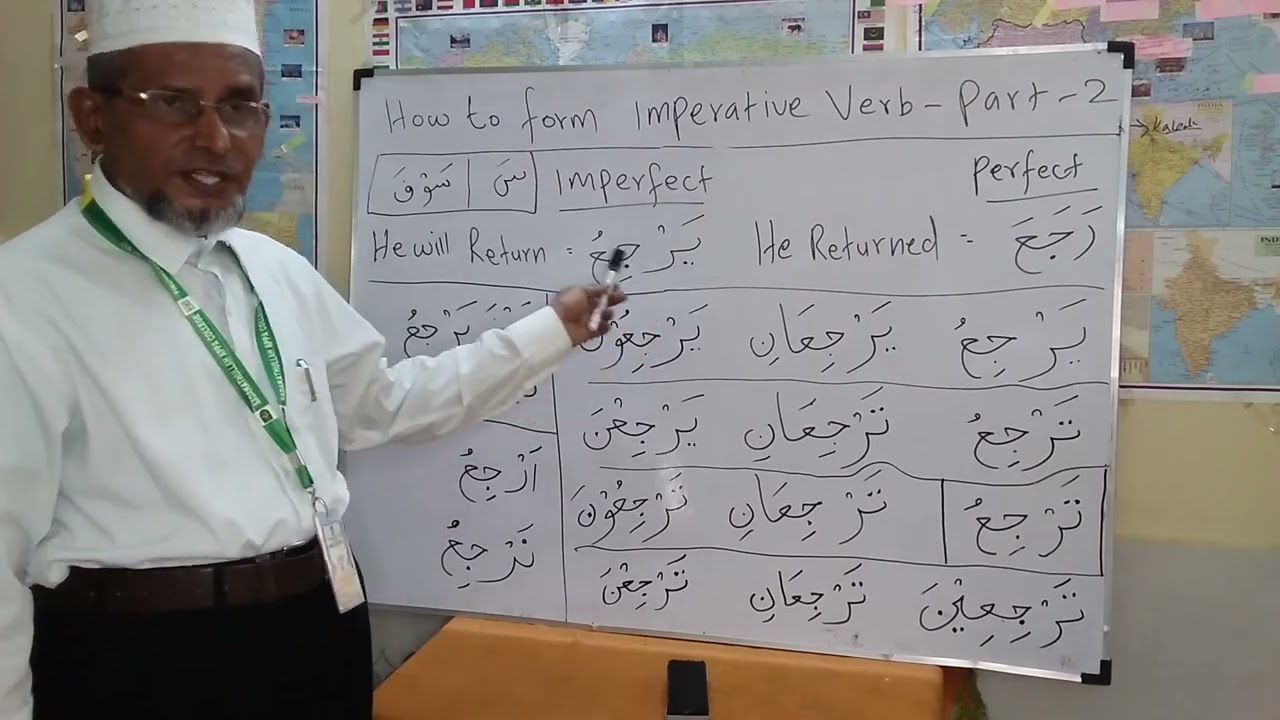 How to form Imperative Verb - Part - 2
سَوْفَ | سَ Imperfect Perfect
He will Return = يَرْجِعُ He Returned = رَجَعَ
يَرْجِعُ يَرْجِعَانِ يَرْجِعُوْنَ يَرْجِعُ
تَرْجِعُ تَرْجِعَانِ يَرْجِعْنَ
تَرْجِعُ تَرْجِعَانِ تَرْجِعُوْنَ اَرْجِعُ
تَرْجِعِيْنَ تَرْجِعَانِ تَرْجِعْنَ نَرْجِعُ
INDIA